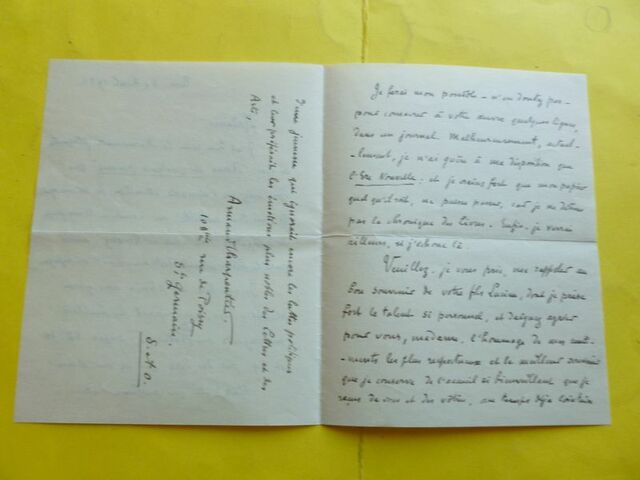 Je ferai mon possible - n'en doutez pas -
pour consacrer à votre œuvre quelques lignes,
dans un journal. Malheureusement, actuel-
-lement, je n'ai guère à ma disposition que
l'Ere Nouvelle : et je crains fort que mon papier
quel qu'il soit, ne puisse passer, car je ne détiens
pas la chronique des livres. Enfin, je verrai
ailleurs, si j'échoue là.
Veuillez, je vous prie, me rappeler au
bon souvenir de votre fils Lucien, dont je prise
fort le talent si personnel, et daignez agréer
pour vous, madame, l'hommage de mes senti-
-ments les plus respectueux et le meilleur souvenir
que je conserve de l'accueil si bienveillant que je
reçus de vous et des vôtres, au temps déjà lointain
d'une jeunesse qui ignorait encore les luttes politiques
et leur préférait les émotions plus nobles des Lettres et des
Arts,
Armand Charpentier.
rue de Poissy
St Germain.
S. et O.